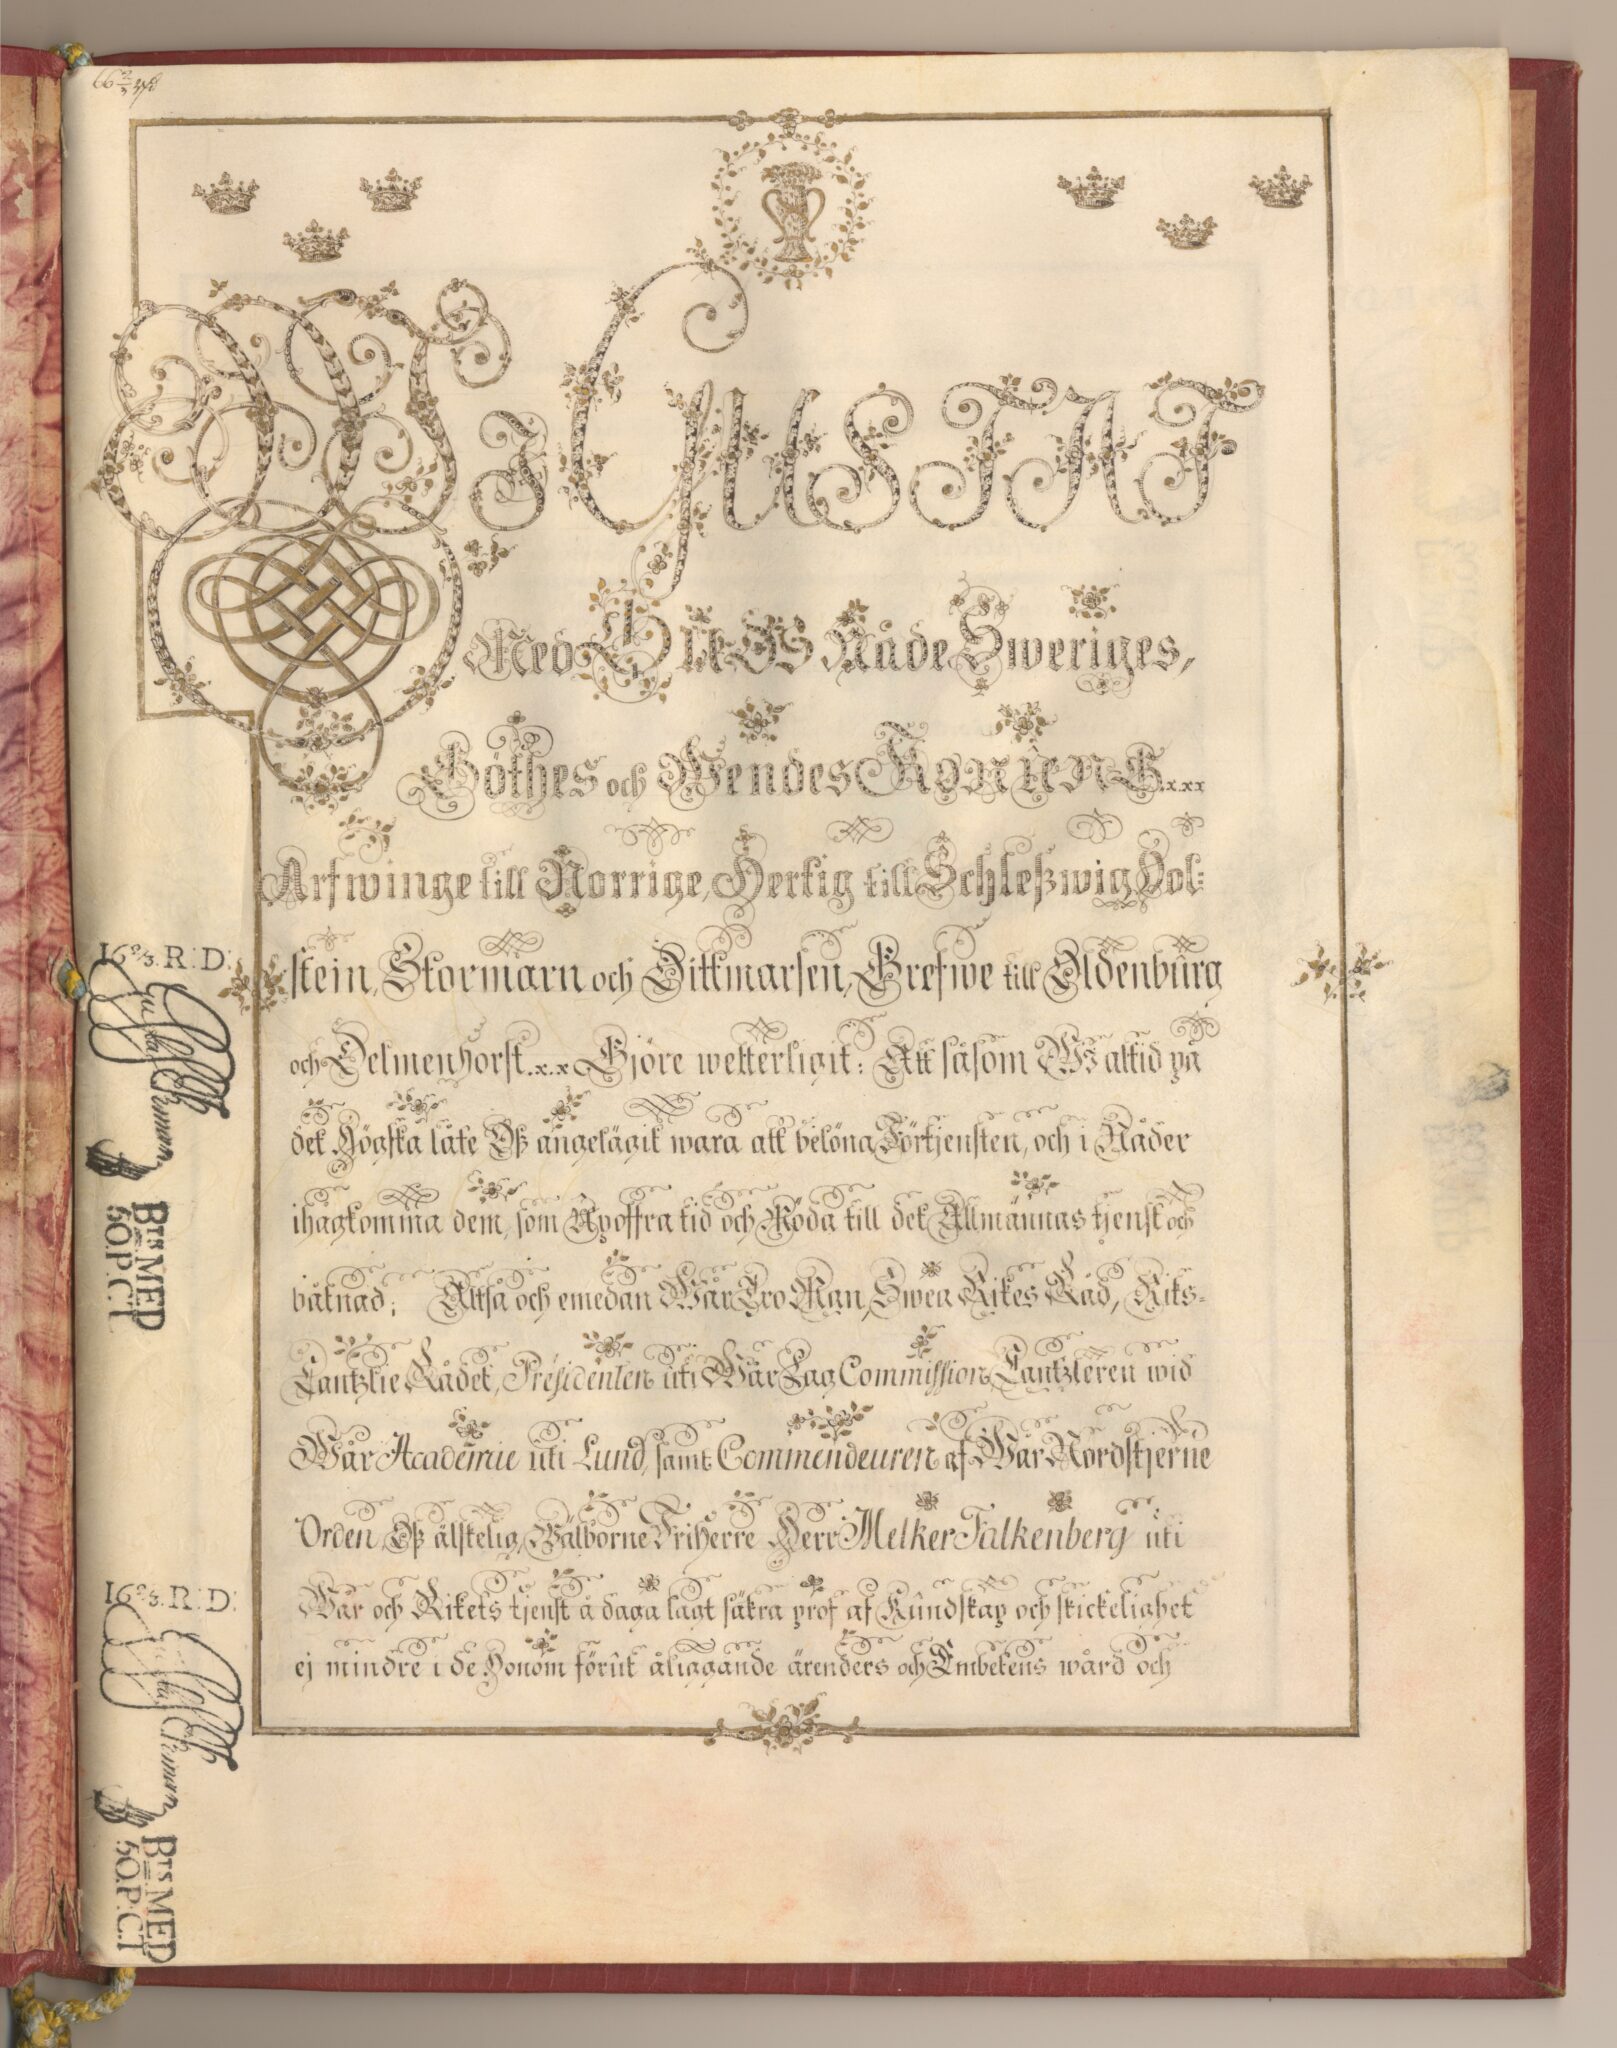 66 2/3
Wi GUSTAF
Med Gudz Nåde Sweriges,
Göthes och Wendes Konung.x.xx
Arfwinge till Norrige, Hertig till Schleßwig Hol:
stein, Stormarn och Dittmarsen, Grefwe till Oldenburg
och Delmenhorst.x.x Gjöre wetterligit: Att såsom Wi altid på
det högsta låte Oß angelägit wara att belöna Förtjensten, och i Nåder
ihågkomma dem, som Upoffra tid och Möda till det Allmännas tjenst och
båtnad; Altså och emedan Wår Tro Man, Swea Rikes Råd, Riks-
Cantzlie Rådet, Præsidenten uti Wår Lag Commission, Cantzleren wid
Wår Academie uti Lund, samt Commendeuren af Wår Nordstjerne
Orden, Oß älskelig, Wälborne Friherre Herr Melker Falkenberg uti
Wår och Rikets tjenst å daga lagt säkra prof af Kundskap och skickelighet
ej mindre i de Honom förut åliggande ärenders och Embetens wård och
16 2/3. R: D:
Bts MED
50.P:CT
16 2/3. R: D:
Bts MED
50.P:CT